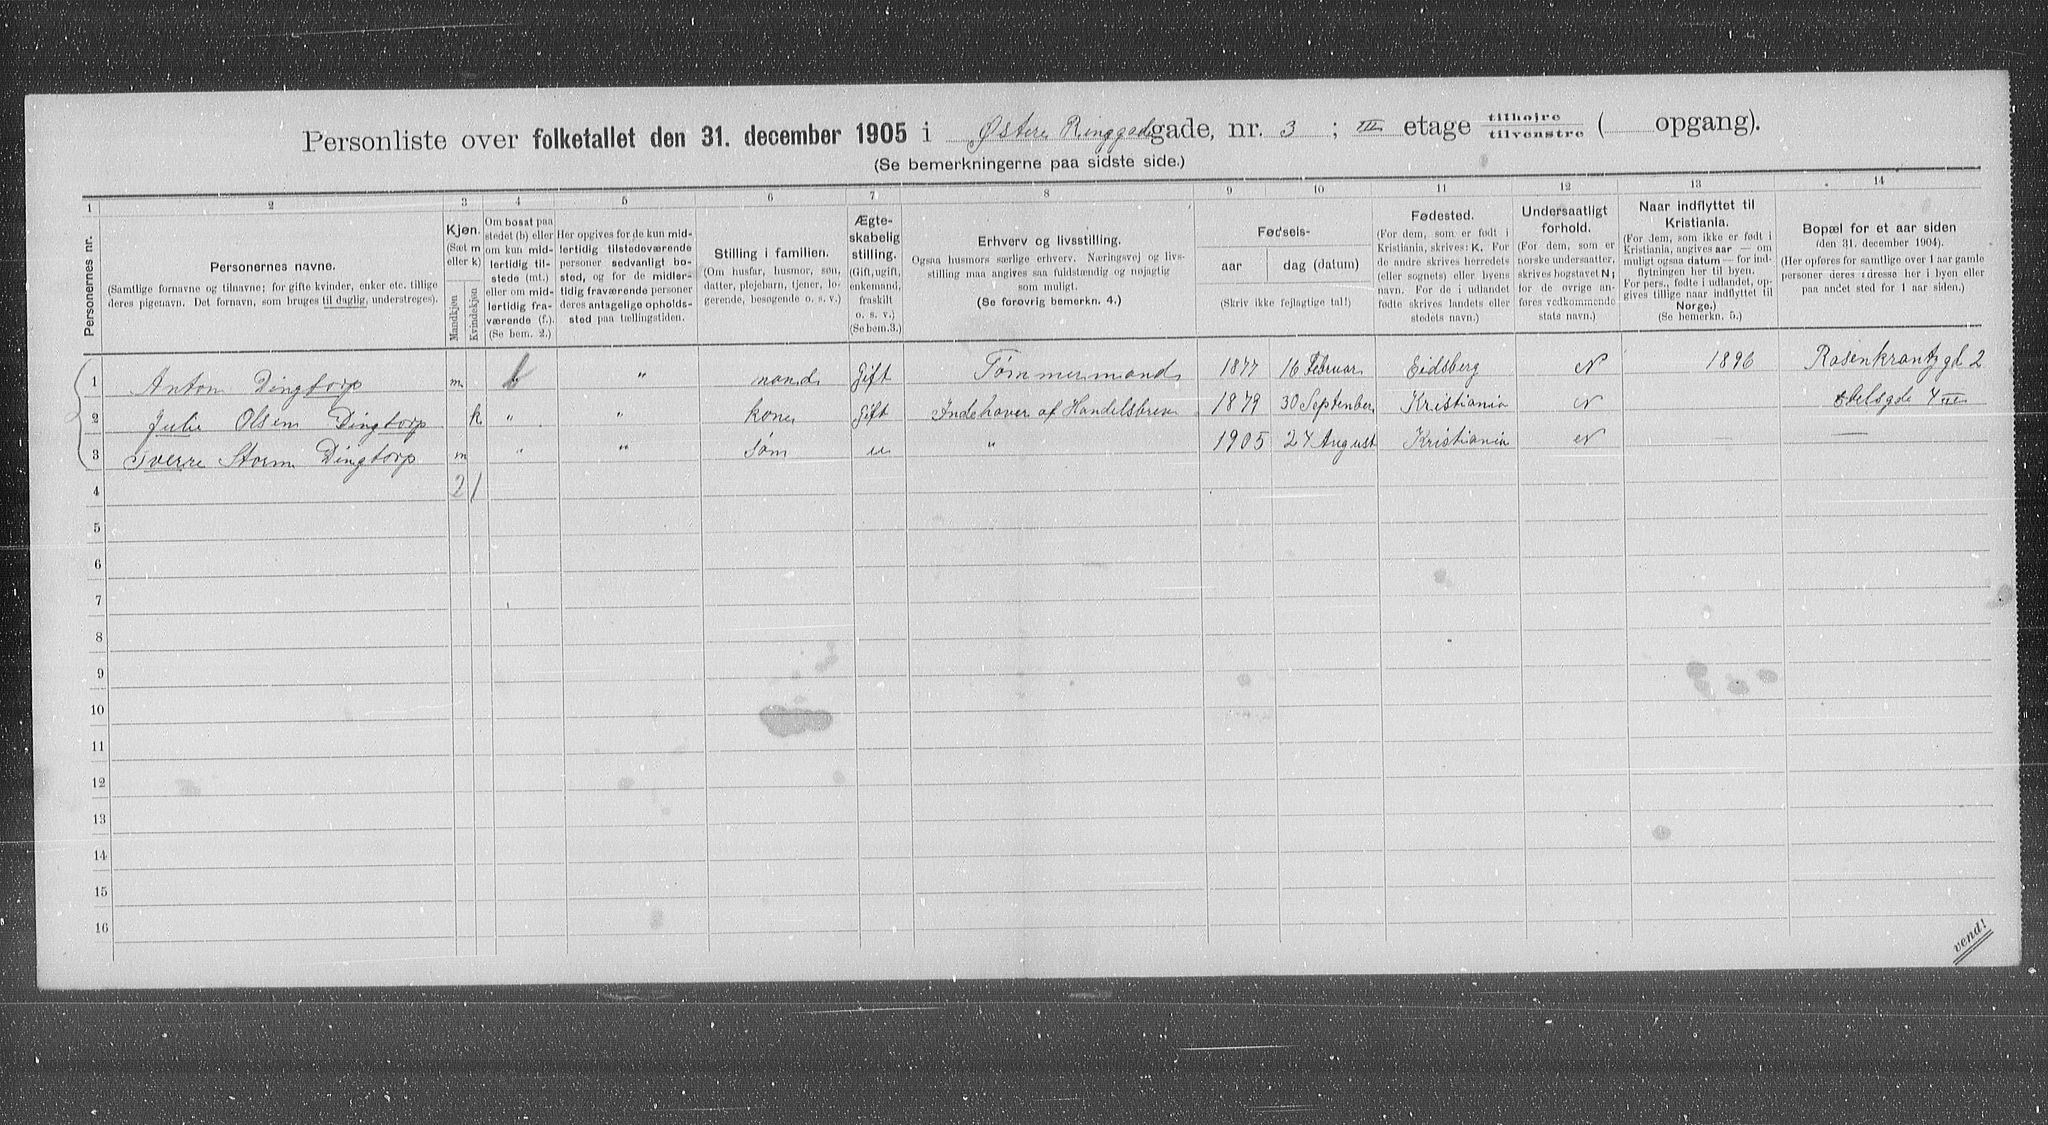 Personliste over folketallet den 31. december 1905 i Østere Ringgade gade, nr. 3 ; III etage tilhøjre tilvenstre ( opgang).
(Se bemerkningerne paa sidste side.)
1 2 3 4 5 6 7 8 9 10 11 12 13 14
Personernes nr.
Personernes navne.
(Samtlige fornavne og tilnavne; for gifte kvinder, enker etc. tillige
deres pigenavn. Det fornavn, som bruges til daglig, understreges).
Kjøn.
(Sæt m
eller k)
Mandkjøn
Kvindekjøn
Om bosat paa
stedet (b) eller
om kun mid-
lertidig til-
stede (mt.)
eller om mid-
lertidig fra-
værende (f.).
(Se bem. 2.)
Her opgives for de kun mid-
lertidig tilstedeværende
personer sedvanligt bo-
sted, og for de midler-
tidig fraværende personer
deres antagelige opholds-
sted paa tællingstiden.
Stilling i familien.
(Om husfar, husmor, søn,
datter, plejebarn, tjener, lo-
gerende, besøgende o. s. v.)
Ægte-
skabelig
stilling.
(Gift, ugift,
enkemand,
fraskilt
o. s. v.)
(Se bem. 3.)
Erhverv og livsstilling.
Ogsaa husmors særlige erhverv. Næringsvej og livs-
stilling maa angives saa fuldstændig og nøjagtig
som muligt.
(Se forøvrig bemerkn. 4.)
Fødsels-
aar
dag (datum)
(Skriv ikke fejlagtige tal!)
Fødested.
(For dem, som er født i
Kristiania, skrives: K. For
de andre skrives herredets
(eller sognets) eller byens
navn. For de i udlandet
fødte skrives landets eller
stedets navn.)
Undersaatligt
forhold.
(For dem, som er
norske undersaatter,
skrives bogstavet N;
for de øvrige an-
føres vedkommende
stats navn.)
Naar indflyttet til
Kristiania.
(For dem, som ikke er født i
Kristiania, angives aar — og om
muligt ogsaa datum — for ind-
flytningen her til byen.
For pers., fødte i udlandet, op-
gives tillige naar indflyttet til
Norge.)
(Se bemerkn. 5.)
Bopæl for et aar siden
(den 31. december 1904).
(Her opføres for samtlige over 1 aar gamle
personer deres adresse her i byen eller
paa andet sted for 1 aar siden.)
1 Anton Dingtorp m b " mand gift Tømmermand 1877 16 Februar Eidsberg N 1896 Rosenkrantzgd 2
2 Julie Olsen Dingtorp k " " kone gift Indehaver af Handelsbrev 1879 30 September Kristiania N
3 Sverre Storm Dingtorp m " " søm u " 1905 24 August Kristiania N — —
4 2 1
5
6
7
8
9
10
11
12
13
14
15
16
vend!